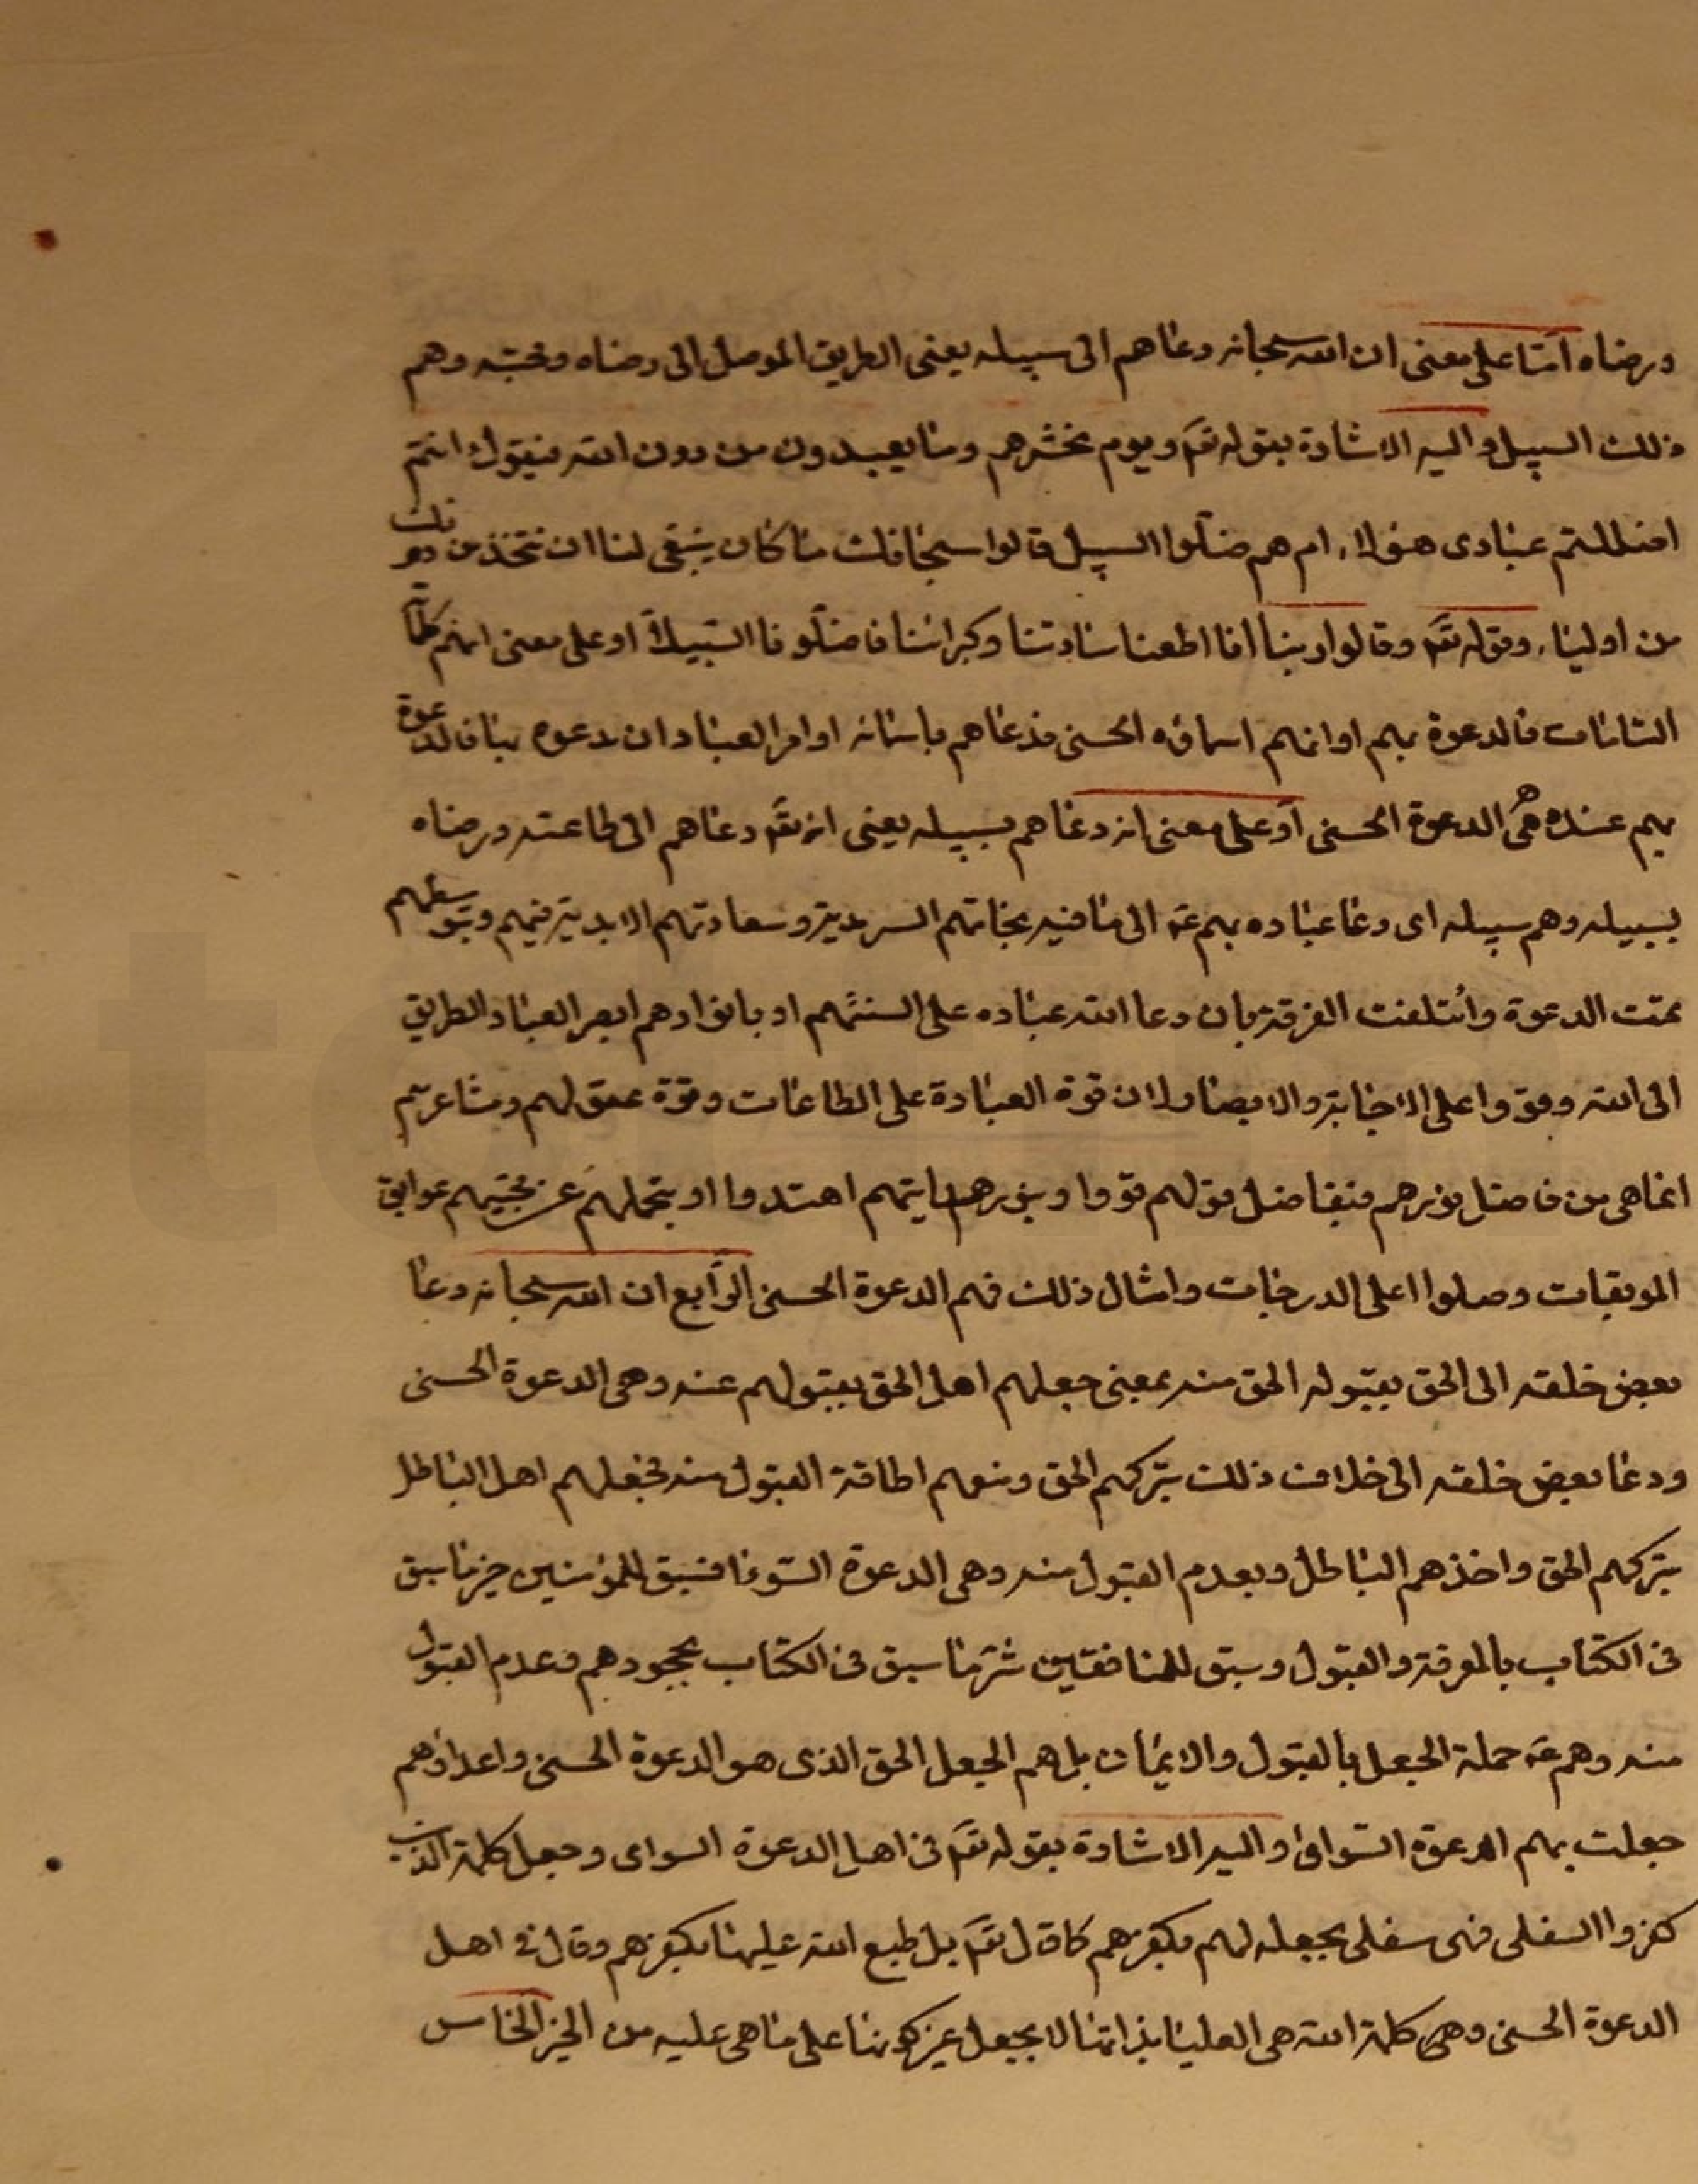 ورضاه امّا على معنى ان الله سبحانه دعاهم الى سبيله يعنى الطريق الموصل الى رضاه ومحبّته وهم
ذلك السبيل واليه الاشارة بقوله تعٓ ويوم نحشرهم وما يعبدون من دون الله فيقول ءانتم
اضللتم عبادى هؤلاء ام هم ضلّوا السبيل قالوا سبحانك ما كان ينبغى لنا ان نتخذ من دونك
من اولياء وقوله تعٓ وقالوا ربنا انا اطعنا سادتنا وكبرائنا فاضلّونا السّبيلا او على معنى انهم كلماته
التامات فالدعوة بهم او انهم اسماؤه الحسنى فدعاهم باسمائه او امر العباد ان يدعوه بها فالدعوة
بهم عنده هى الدعوة الحسنى او على معنى انه دعاهم بسبيله يعنى انه تعٓ دعاهم الى طاعته ورضاه
بسبيله وهم سبيله اى دعا عباده بهم عٓ الى ما فيه نجاتهم السرمدية وسعادتهم الابدية فبهم وبتوسطهم
تمّت الدعوة وائتلفت الفرقة بان دعا الله عباده على السنتهم او بانوارهم ابصر العباد الطريق
الى الله وقووا على الاجابة والايصا ولان قوة العبادة على الطاعات وقوة عقولهم ومشاعرهم
انما هى من فاضل نورهم فبفاضل قوتهم قووا وبنور هدايتهم اهتدوا او بتحملهم عن محبيهم عوايق
الموبقات وصلوا اعلى الدرجات وامثال ذلك فهم الدعوة الحسنى الرّابع ان الله سبحانه دعا
بعض خلقه الى الحق بقبوله الحق منه بمعنى جعلهم اهل الحق بقبولهم عنه وهى الدعوة الحسنى
ودعا بعض خلقه الى خلاف ذلك بتركهم الحق ومنعهم اطاقة القبول منه فجعلهم اهل الباطل
بتركهم الحق واخذهم الباطل وبعدم القبول منه وهى الدعوة السّوءا فسبق للمؤمنين خير ما سبق
فى الكتاب بالمعرفة والقبول وسبق للمنافقين شرّ ما سبق فى الكتاب بجحودهم وعدم القبول
منه وهم عٓ حملة الجعل بالقبول والايمان بل هم الجعل الحق الذى هو الدعوة الحسنى واعداؤهم
جعلت بهم الدعوة السّوأى واليه الاشارة بقوله تعٓ فى اهل الدعوة السواى وجعل كلمة الذين
كفروا السفلى فهى سفلى بجعله لهم بكفرهم كما قال تعٓ بل طبع الله عليها بكفرهم وقال فى اهل
الدعوة الحسنى وهى كلمة الله هى العليا بذاتها لا بجعل غير كونها على ما هى عليه من الخير الخامس